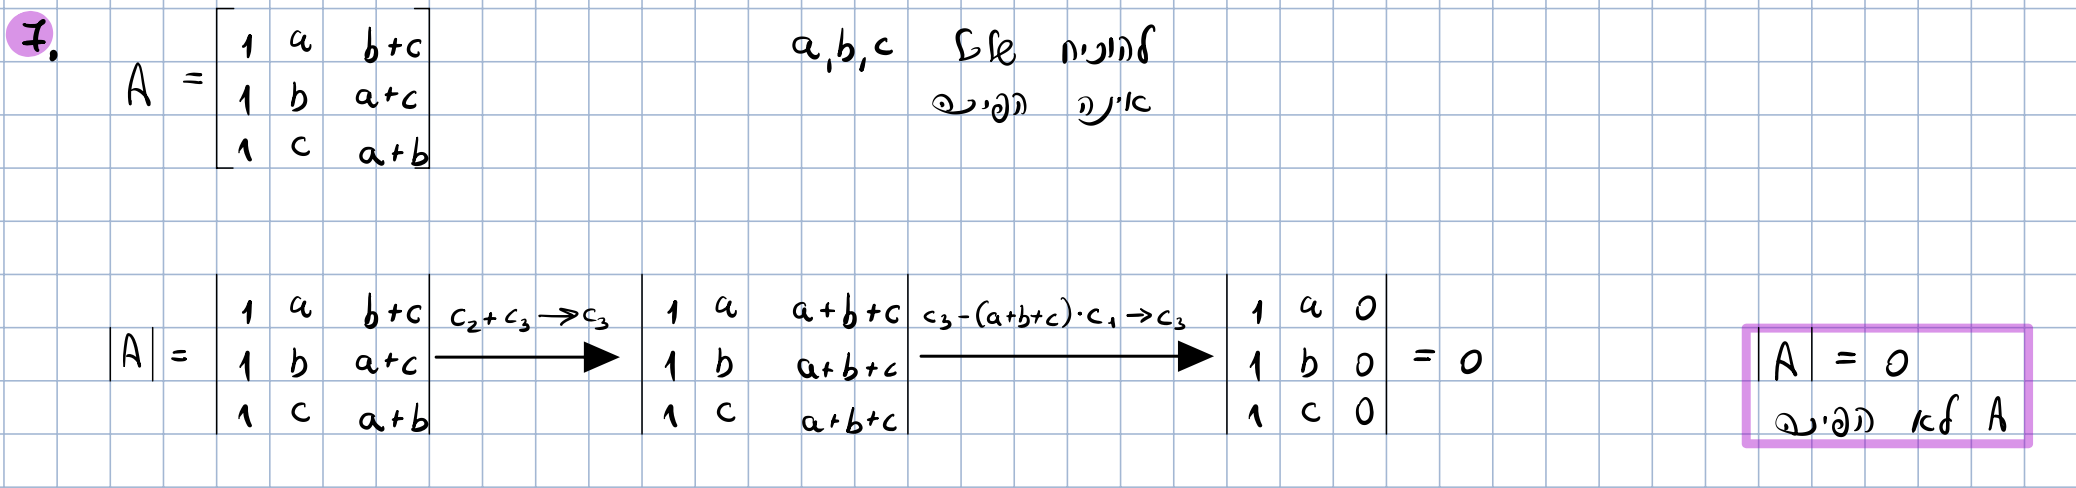 7.
A = [ 1 a b+c
1 b a+c
1 c a+b ]
להוכיח שלכל a,b,c
אינה הפיכה
|A| = | 1 a b+c
1 b a+c
1 c a+b |
c₂+c₃→c₃
| 1 a a+b+c
1 b a+b+c
1 c a+b+c |
c₃-(a+b+c)·c₁→c₃
| 1 a 0
1 b 0
1 c 0 | = 0
|A| = 0
A לא הפיכה